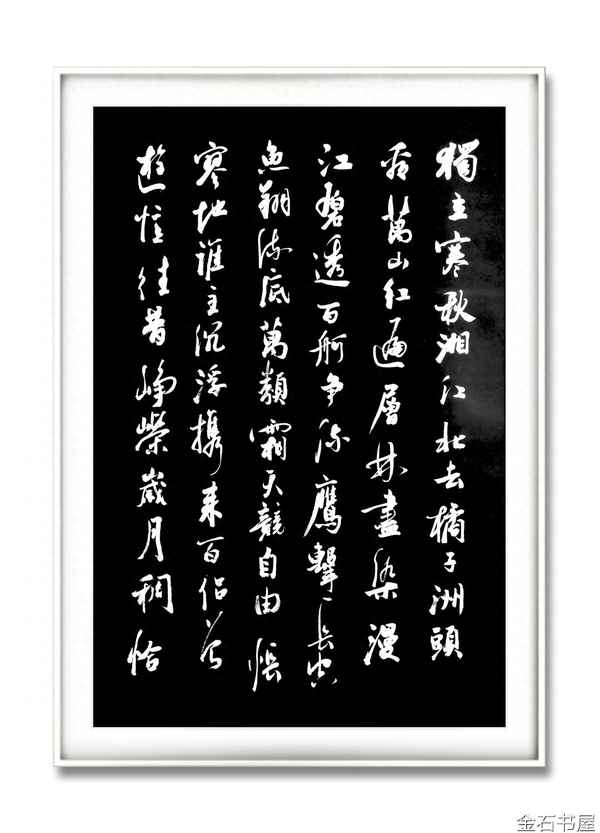 獨立寒秋湘江北去橘子洲頭
看萬山紅遍層林盡染漫
江碧透百舸争流鷹擊長空
魚翔淺底萬類霜天競自由悵
寥地誰主沉浮攜来百侣曾
遊憶往昔崢嶸歲月稠恰
金石书屋